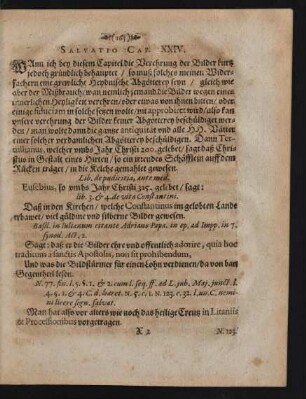 (163)
SALVATIO CAP. XXIV.
WAnn ich bey diesem Capitel die Verehrung der Bilder kurtz
jedoch gründlich behauptet / so muß solches meinen Wider-
sachern eine grewliche Heydnische Abgötterey seyn / gleich wie
aber der Mißbrauch / wan nemlich jemand die Bilder wegen einer
innerlichen Heyligkeit verehren / oder etwas von ihnen bitten / oder
einige fiduciam in solche setzen wolte / nit approbiert wird / also kan
unsere verehrung der Bilder keiner Abgötterey beschüldiget wer-
den / man wolte dann die gantze antiquität und alle H.H. Vätter
einer solcher verdamlichen Abgötterey beschüldigen. Dann Ter-
tullianus, welcher umbs Jahr Christi 200. gelebet / sagt daß Chri-
stus in Gestalt eines Hirten / so ein irrendes Schäfflein auff dem
Rücken träget / in die Kelche gemahlet gewesen.
Lib. de pudicitia, ante med.
Eusebius, so umbs Jahr Christi 325. gelebet / sagt:
lib. 3. & 4. de vita Constantini.
Daß in den Kirchen / welche Constantinus im gelobten Lande
erbawet / viel güldne und silberne Bilder gewesen.
Basil. in Iulianum citante Adriano Papa, in ep. ad Imp. in 7.
synod. Act. 2.
Sagt: daß er die Bilder ehre und offentlich adorire, quia hoc
traditum à sanctis Apostolis, non sit prohibendum,
Und was die Bildstürmer für einen Lohn verdienen / da von hat
Gegentheil lesen.
N. 77. fit. l. 5. §. 1. & 2. cum l. seq. ff. ad L. jub. Maj. junct. l.
4. 5. 1. & 4. C. d. haret. N. 5. c. 1. N. 123. c. 32. l. un. C. nemi-
ni licere sign. salvat.
Man hat also vor alters wie noch das heilige Creutz in Litaniis
& Processionibus vorgetragen.
X 2
N. 123.